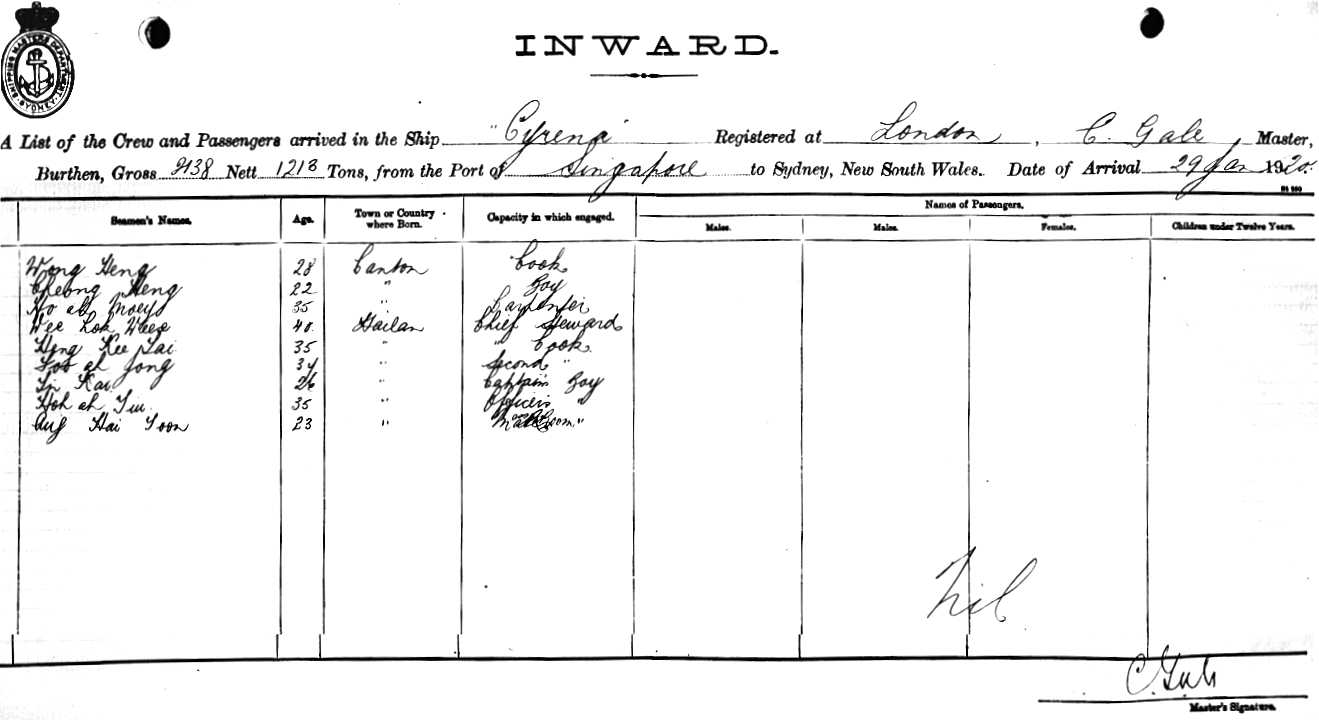 SHIPPING MASTERS DEPARTMENT SYDNEY
INWARD.
A List of the Crew and Passengers arrived in the Ship "Cyrena" Registered at London, C. Gale Master,
Burthen, Gross 2138 Nett 1213 Tons, from the Port of Singapore to Sydney, New South Wales. Date of Arrival 29 Jan 1920.
Seamen's Names. Age. Town or Country where Born. Capacity in which engaged. Names of Passengers.
Males. Males. Females. Children under Twelve Years.
Wong Heng 28 Canton Cook
Cheong Heng 22 " Boy
Ho ah Moey 35 " Carpenter
Wee Lok 40. Hailan Chief Steward
Heng Kee Lai 35 " " Cook.
Foo ah Jong 34 " Second "
Kai 26 " Captain's Boy
Hoh ah 35 " Officers "
Aug Hai Toon 23 " Room."
Nil
C. Gale
Master's Signature.